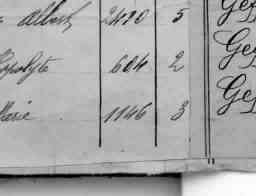 Albert 2420 5 Gef
Hypolyte 604 2 Gef
Marie 1146 3 Gef